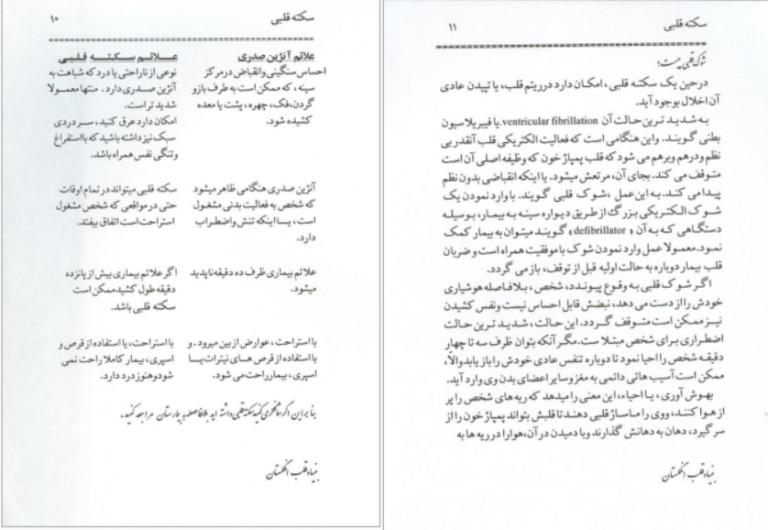 سکته قلبی ۱۰
علائم آنژین صدری
احساس سنگینی وانقباض درمرکز
سینه، که ممکن است به طرف بازو
گردن، فک، چهره، پشت یا معده
کشیده شود.
علائم سکته قلبی
نوعی از ناراحتی یا درد که شباهت به
آنژین صدری دارد. منتها معمولا
شدید تر است.
امکان دارد عرق کنید، سردردی
سبک نیز داشته باشید که با استفراغ
وتنگی نفس همراه باشد.
آنژین صدری هنگامی ظاهر میشود
که شخص به فعالیت بدنی مشغول
است، یا اینکه تنش واضطراب
دارد.
سکته قلبی میتواند در تمام اوقات
حتی در مواقعی که شخص مشغول
استراحت است اتفاق بیفتد.
علائم بیماری ظرف ده دقیقه ناپدید
میشود.
اگر علائم بیماری بیش از پانزده
دقیقه طول کشید ممکن است
سکته قلبی باشد.
با استراحت، عوارض از بین میرود. و
با استفاده از قرص های نیترات یا
اسپری، بیمار راحت می شود.
با استراحت، یا استفاده از قرص و
اسپری، بیمار کاملا راحت نمی
شود و هنوز درد دارد.
بنابراین اگر شما فکر می کنید سکته قلبی داشته اید بلافاصله به بیمارستان مراجعه کنید.
بنیاد قلب انگلستان
سکته قلبی ۱۱
شوک قلبی چیست؟
در حین یک سکته قلبی، امکان دارد در ریتم قلب، یا تپیدن عادی
آن اخلال بوجود آید.
به شدید ترین حالت آن ventricular fibrillation. یا فیبریلاسیون
بطنی گویند. واین هنگامی است که فعالیت الکتریکی قلب آنقدر بی
نظم ودرهم وبرهم می شود که قلب پمپاژ خون که وظیفه اصلی آن است
متوقف می کند. بجای آن، مرتعش میشود. یا اینکه انقباضی بدون نظم
پیدا می کند. به این عمل، شوک قلبی گویند. با وارد نمودن یک
شوک الکتریکی بزرگ از طریق دیواره سینه به بیمار، بوسیله
دستگاهی که به آن « defibrillator » گویند میتوان به بیمار کمک
نمود. معمولا عمل وارد نمودن شوک با موفقیت همراه است و ضربان
قلب بیمار دوباره به حالت اولیه قبل از توقف، باز می گردد.
اگر شوک قلبی به وقوع پیوندد، شخص، بلافاصله هوشیاری
خودش را از دست می دهد، نبضش قابل احساس نیست ونفس کشیدن
نیز ممکن است متوقف گردد. این حالت، شدید ترین حالت
اضطراری برای شخص مبتلا ست. مگر آنکه بتوان ظرف سه تا چهار
دقیقه شخص را احیا نمود تا دوباره تنفس عادی خودش را باز یابد والا،
ممکن است آسیب هائی دائمی به مغز وسایر اعضای بدن وی وارد آید.
بهوش آوری، یا احیاء، این معنی را میدهد که ریه های شخص را پر
از هوا کنند، ووی را ماساژ قلبی دهند تا قلبش بتواند پمپاژ خون را از
سر گیرد، دهان به دهانش گذارند وبا دمیدن در آن، هوا را در ریه ها به
بنیاد قلب انگلستان